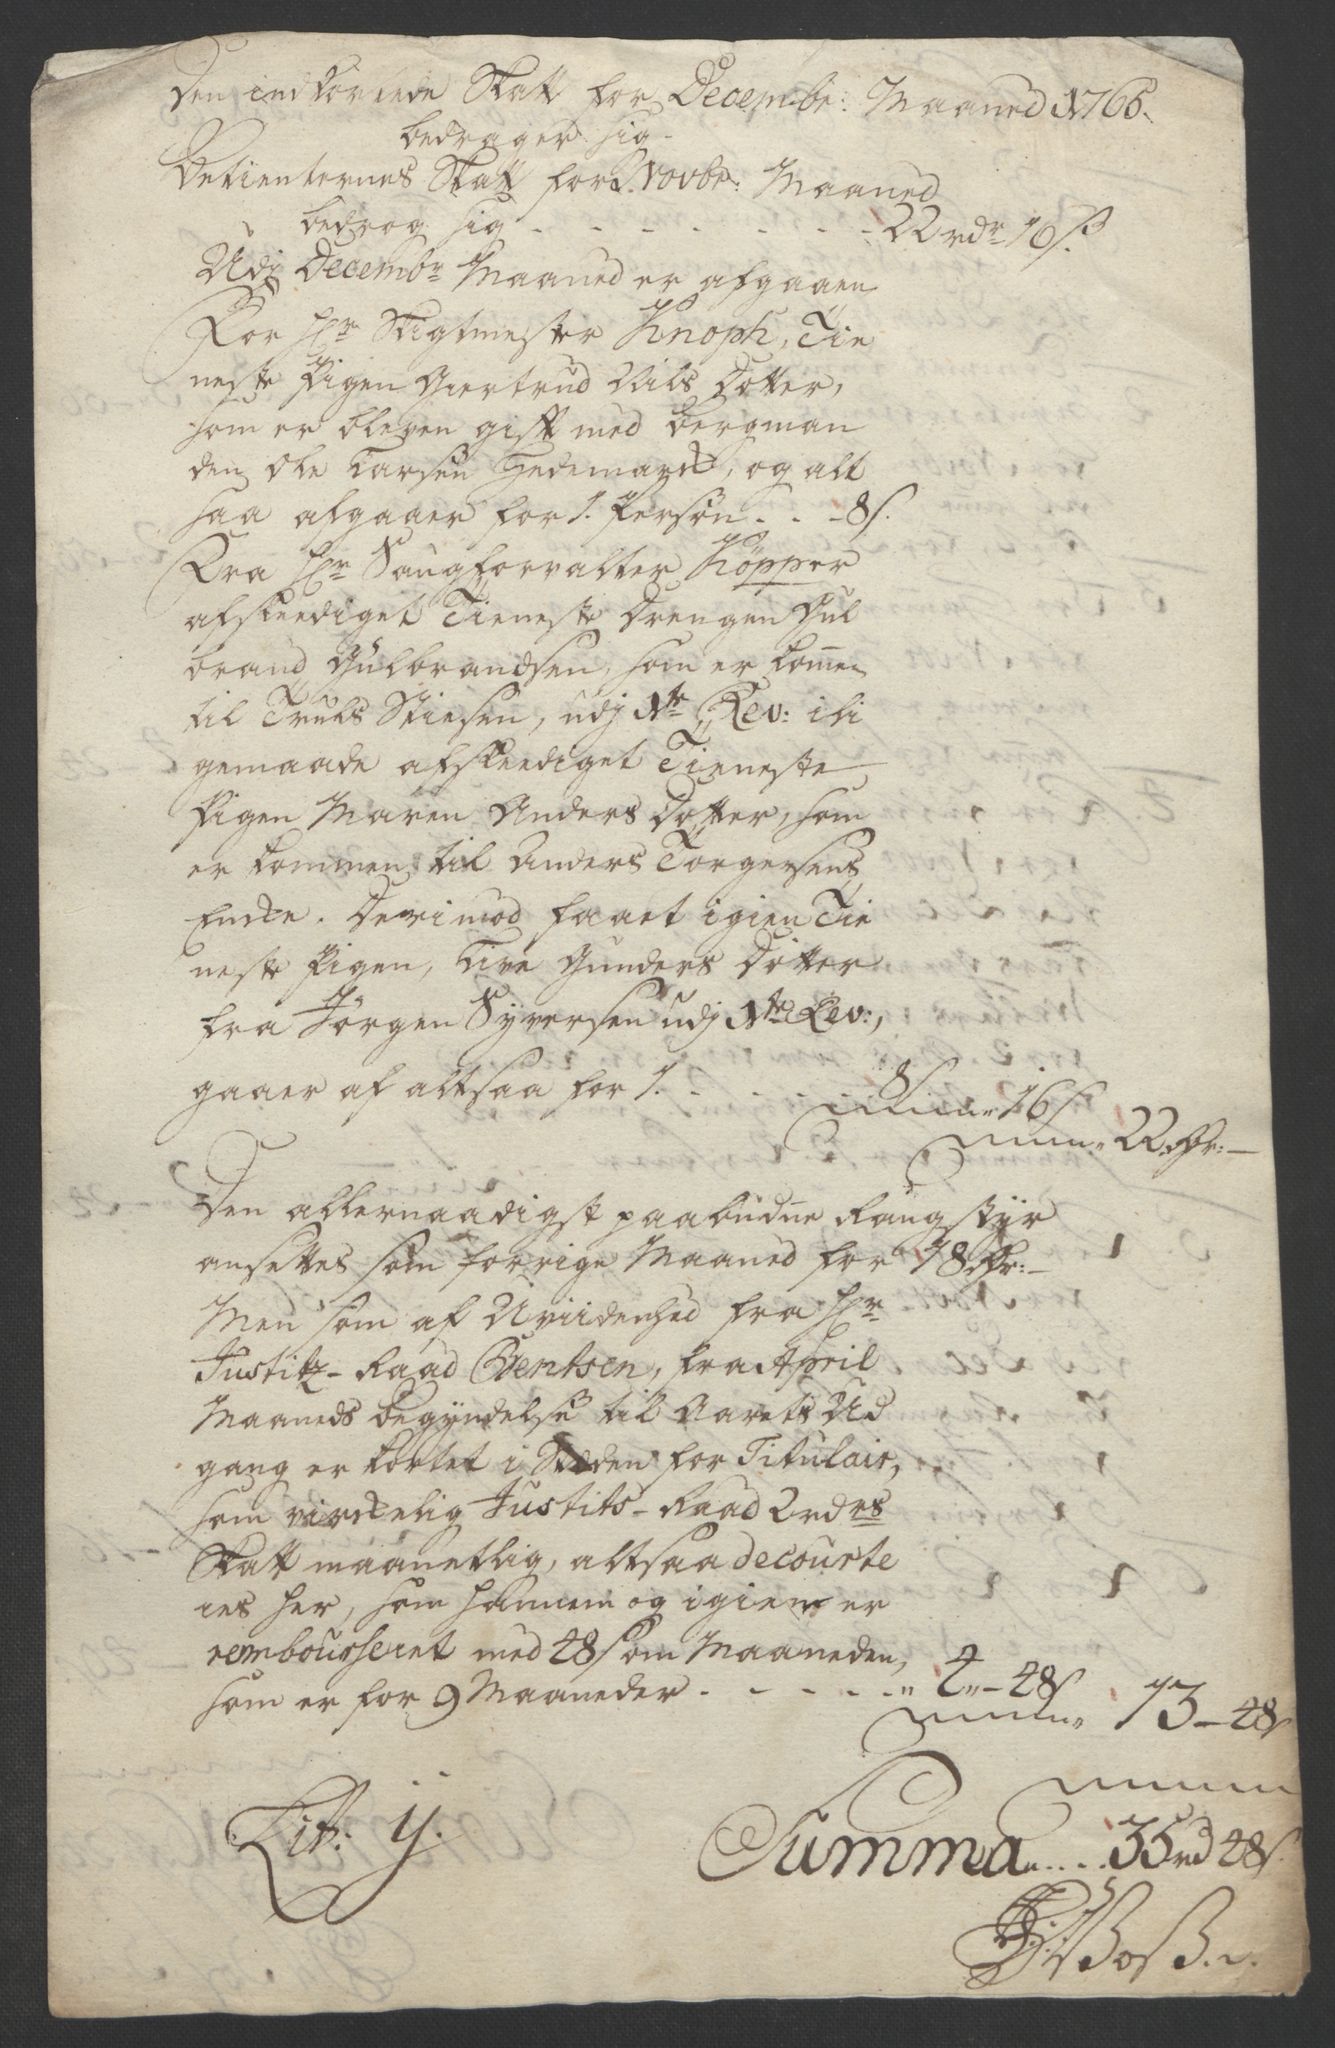 Den indkortede Skatt for Decembr: Maaned 1766.
bedrager sig
Betienternes Skatt for Novbr: Maaned
bedrog sig - - - - - - - 22 rdr 16 s.
Udj Decembr Maaned er afgaaen
For Hr Stigtmester Knoph, Tie
neste Pigen Giertrud Nils Dotter,
som er bleven gift med Bergman
den Ole Larsen Hedemark, og alt
saa afgaaer for 1. Person. . - 8 s.
Fra Hr Saugforvalter Köpper
afskeediget Tieneste Drengen Gul
brand Gulbrandsen, som er komen
til Truls Stiesen, udj 1te Rev: ili
gemaade afskeediget Tieneste
Pigen Maren Anders Dotter, som
er kommen til Anders Torgersens
Encke. Derimod faaet igien Tie
neste Pigen, Live Gunders Dotter
fra Jörgen Syversen udj 1te Rev:,
gaaer af altsaa for 1. - - - - 8 s
16 s
22 Rdr: —
Den allernaadigst paabudne Rangstyr
ansettes som forrige Maaned for 18 Rdr: —
Men som af Uviidenhed fra Hr
Justitz-Raad Bentsen, fra April
Maaneds Begyndelse til Aarets Ud
gang er kortet i Stæden for Titulair,
som virckelig Justits-Raad 2 rdrs
Skatt maanetlig, altsaa decourte
res her, som hannem og igien er
rembousseret med 48 s om Maaneden,
som er for 9 Maaneder - - - - - 4 - 48 s
13 - 48 s
Litt: ij.
Summa . . . . 35 rd 48 s.